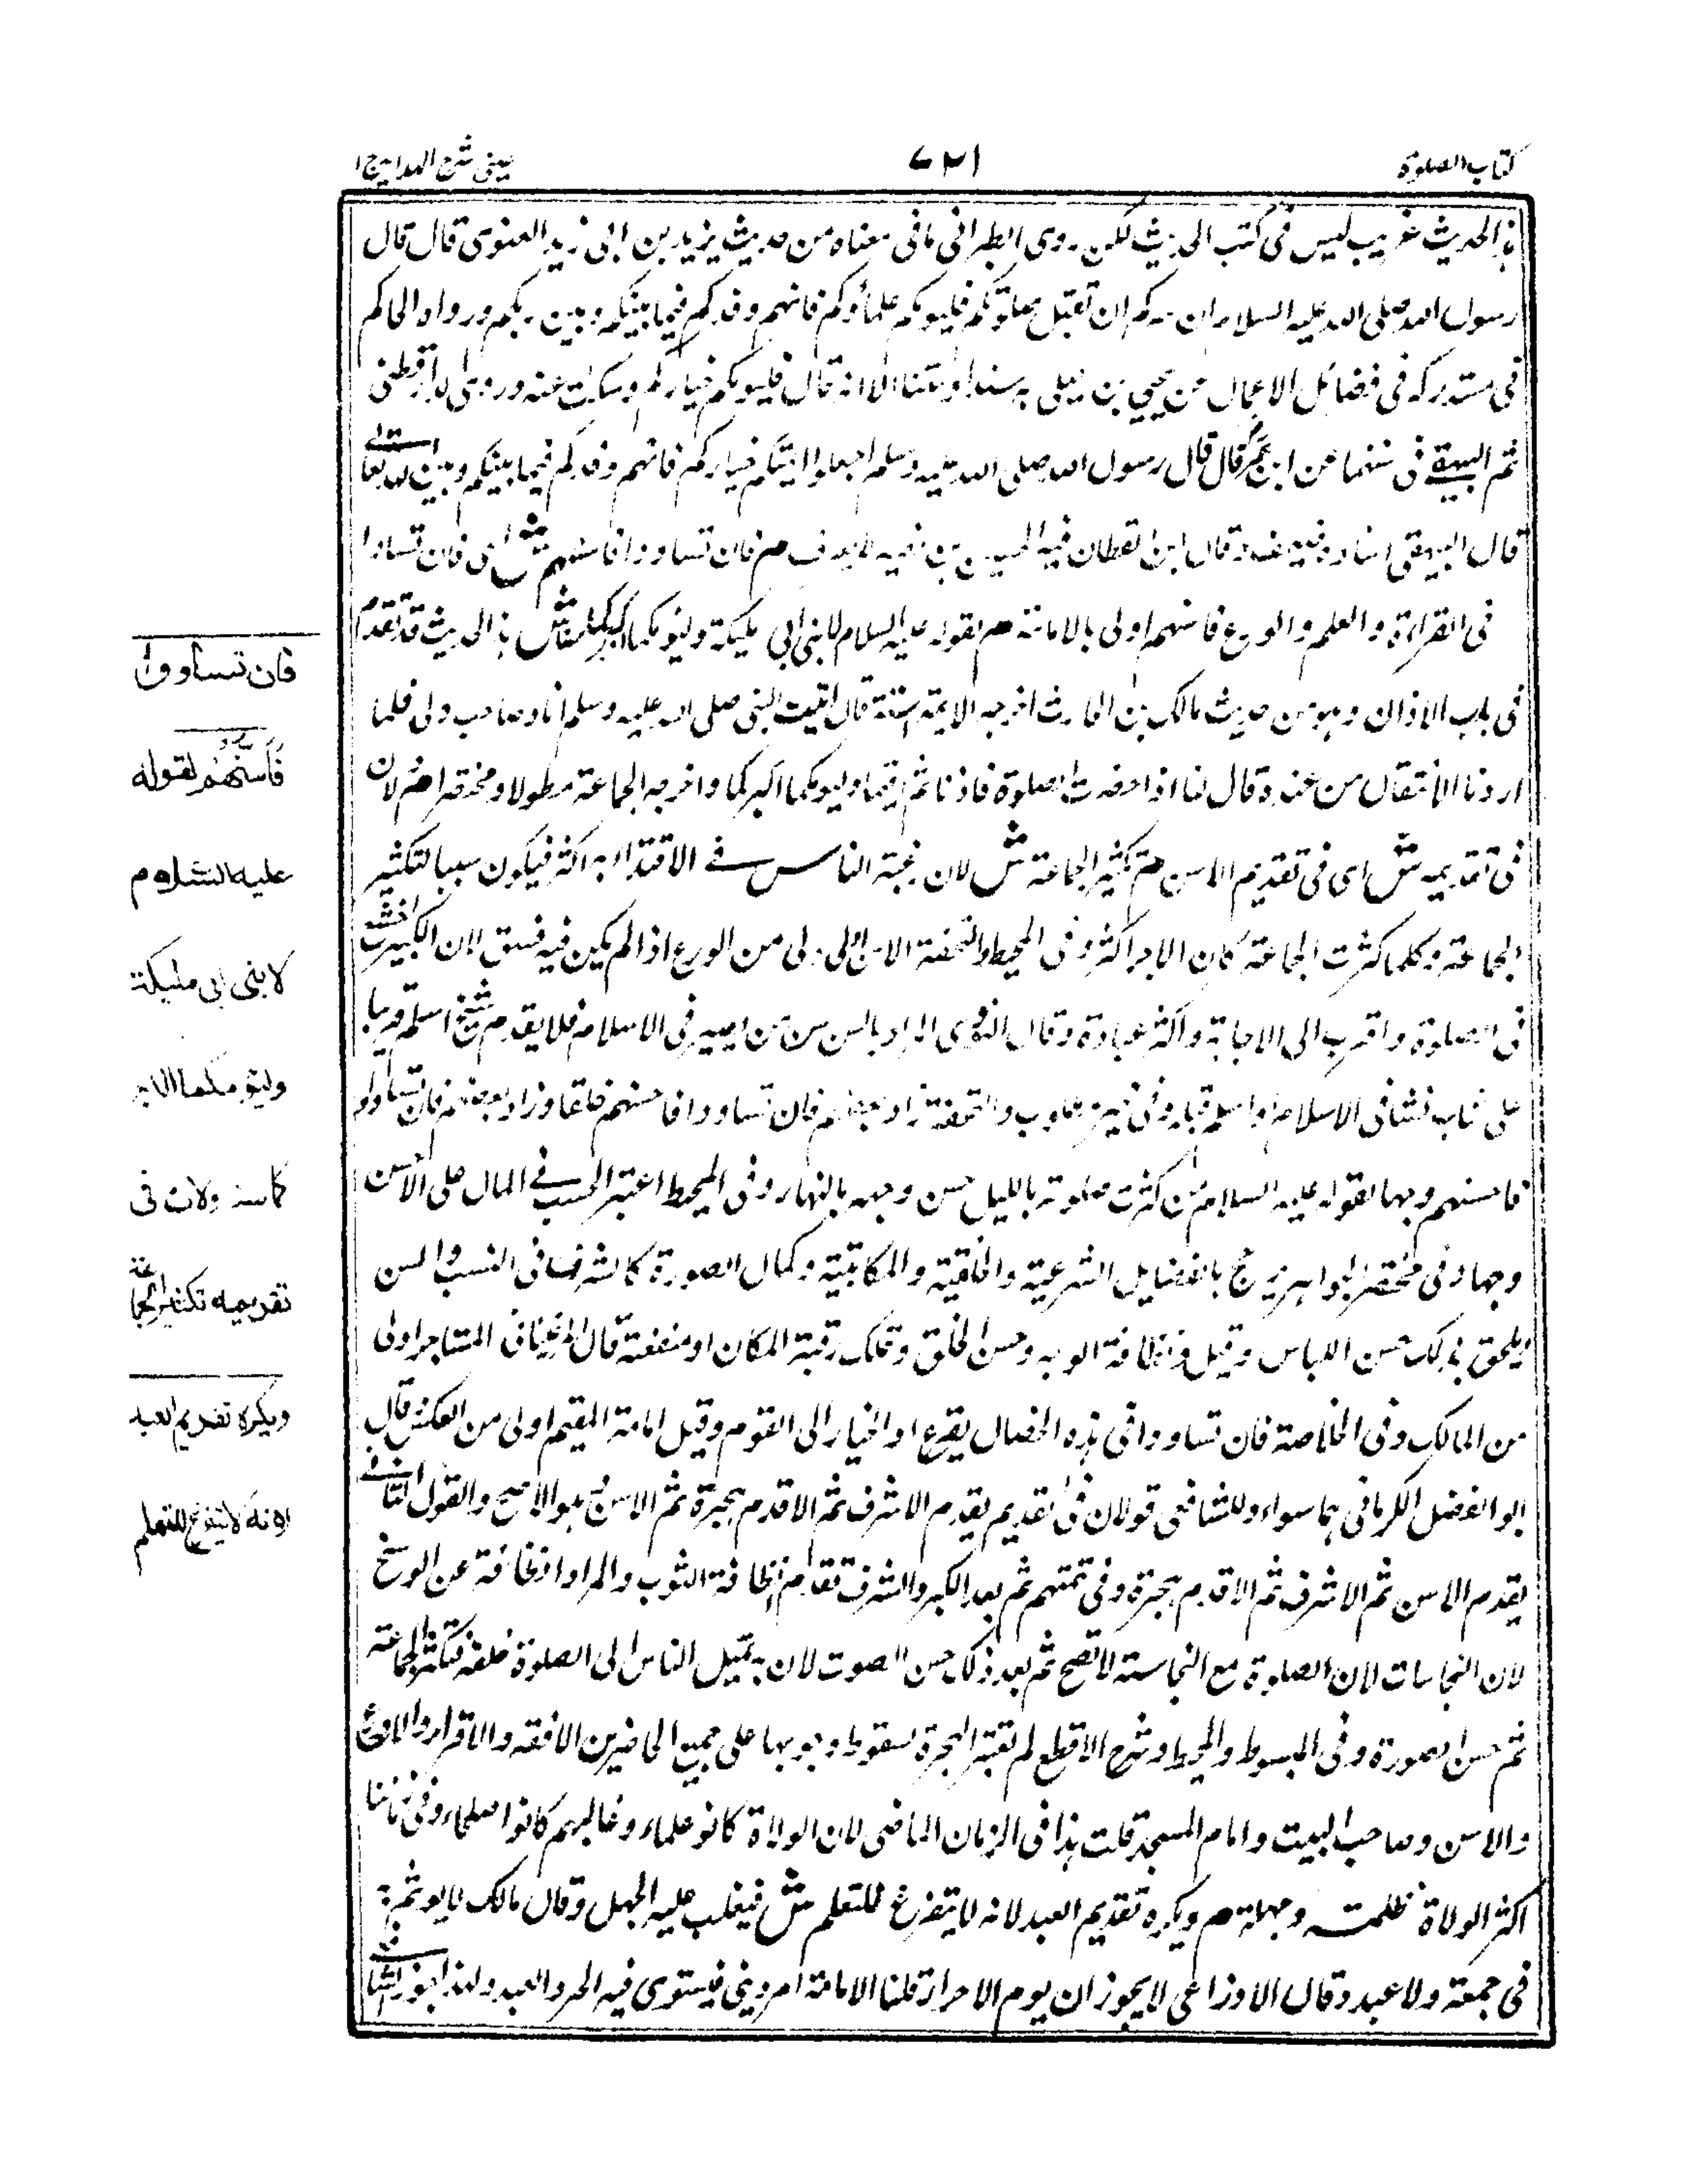 كتاب الصلوة
٧٢١
عينى شرح الهداية ج ١
هذا الحديث غريب ليس فى كتب الحديث لكن روى الطبرانى ما فى معناه من حديث يزيد بن ابى زيد الغنوى قال قال
رسول الله صلى الله عليه السلام ان سركم ان تقبل صلوتكم فليؤمكم علماؤكم فانهم وفدكم فيما بينكم وبين ربكم ورواه الحاكم
فى مستدركه فى فضائل الاعمال عن يحيى بن يعلى به سندا ومتنا الا انه قال فليؤمكم خياركم وسكت عنه وروى الدارقطنى
ثم البيهقى فى سننهما عن ابن عمر قال قال رسول الله صلى الله عليه وسلم اجعلوا ائمتكم خياركم فانهم وفدكم فيما بينكم وبين الله تعالى
قال البيهقى اسناده ضعيف وقال ابن القطان فيه الحسين بن نصر لا يعرف م فان تساووا فاسنهم ش اى فان تساووا
فى القراءة والعلم والورع فاسنهم اولى بالامامة م لقوله عليه السلام لابنى ابى مليكة وليؤمكما اكبركما ش هذا الحديث قد تقدم
فى باب الاذان وهو من حديث مالك بن الحارث اخرجه الايمة الستة قال اتيت النبى صلى الله عليه وسلم انا وصاحب لى فلما
اردنا الانتقال من عنده قال لنا اذا حضرت الصلوة فاذنا ثم اقيما وليؤمكما اكبركما واخرجه الجماعة مطولا ومختصرا م لان
فى تقديمه ش اى فى تقديم الاسن م تكثير الجماعة ش لان رغبة الناس فى الاقتداء به اكثر فيكون سببا لتكثير
الجماعة وكلما كثرت الجماعة كان الاجر اكثر وفى المحيط والتحفة الاسن اولى من الورع اذا لم يكن فيه فسق لان الكبير اخشع
فى الصلوة واقرب الى الاجابة واكثر عبادة وقال النووى المراد بالسن سن من اسن فى الاسلام فلا يقدم شيخ اسلم قريبا
على شاب نشا فى الاسلام او اسلم قبله وفى التحفة زاد بعضهم فان تساووا فاحسنهم خلقا وزاد بعضهم فان تساووا
فاحسنهم وجها لقوله عليه السلام من كثرت صلوته بالليل حسن وجهه بالنهار وفى المحيط اعتبر الحسب فى المال على الاحسن
وجها وفى مختصر الجواهر يرجح بالفضايل الشرعية والخلقية والمكانية وكمال الصورة كالشرف فى النسب والسن
ويلحق بذلك حسن اللباس وقيل ونظافة الوجه وحسن الخلق وتملك رقبة المكان او منفعته قال المرغينانى المستاجر اولى
من المالك وفى الخلاصة فان تساووا فى هذه الخصال يقرع او الخيار الى القوم وقيل امامة المقيم اولى من العكس قال
ابو الفضل الكرمانى هما سواء وللشافعى قولان فى القديم يقدم الاشرف ثم الاقدم هجرة ثم الاسن هو الاصح والقول الثانى
يقدم الاسن ثم الاشرف ثم الاقدم هجرة وفى تتمتهم ثم بعد الكبر والشرف تقدم نظافة الثوب والمراد نظافة عن الوسخ
لان النجاسات لان الصلوة مع النجاسة لا تصح ثم بعد ذلك حسن الصوت لان به تميل الناس الى الصلوة خلفه فتكثر الجماعة
ثم حسن الصورة وفى المبسوط والمحيط وشرح الاقطع لم تعتبر الهجرة لسقوط وجوبها على جميع الحاضرين الافقه والاقراء والاورع
والاسن وصاحب البيت وامام المسجد قلت هذا فى الزمان الماضى لان الولاة كانوا علماء وغالبهم كانوا صلحاء وفى زماننا
اكثر الولاة ظلمة وجهلة م ويكره تقديم العبد لانه لا يتفرغ للتعلم ش فيغلب عليه الجهل وقال مالك لا يؤم
فى جمعة ولا عيد وقال الاوزاعى لا يجوز ان يؤم الاحرار قلنا الامامة امر دينى فيستوى فيه الحر والعبد ولهذا
فان تساووا
فأسنهم لقوله
عليه السلام
لابنى ابى مليكة
وليؤمكما اكبر
كما سنا ولان فى
تقديمه تكثير الجماعة
ويكره تقديم العبد
لانه لا يتفرغ للتعلم